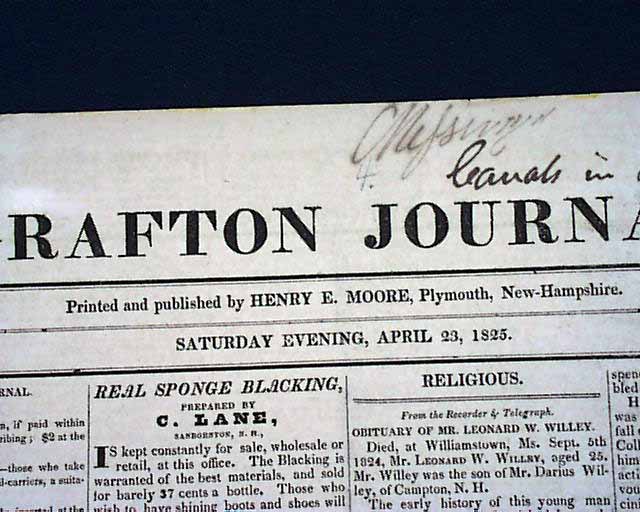 canals in
GRAFTON JOURNA
Printed and published by HENRY E. MOORE, Plymouth, New-Hampshire.
SATURDAY EVENING, APRIL 23, 1825.
RNAL.
n, if paid within
ribing; $2 at the
—those who take
l-carriers, a suita-
inserted at the
REAL SPONGE BLACKING,
PREPARED BY
C. LANE,
SANBORNTON, N. H.,
IS kept constantly for sale, wholesale or
retail, at this office. The Blacking is
warranted of the best materials, and sold
for barely 37 cents a bottle. Those who
wish to have shining boots and shoes will
RELIGIOUS.
From the Recorder & Telegraph.
OBITUARY OF MR. LEONARD W. WILLEY.
Died, at Williamstown, Ms. Sept. 5th
1824, Mr. LEONARD W. WILLEY, aged 25.
Mr. Willey was the son of Mr. Darius Wil-
ley, of Campton, N. H.
The early history of this young man
spen
bled
H
was
fall
Coll
him
acti
vou
cin